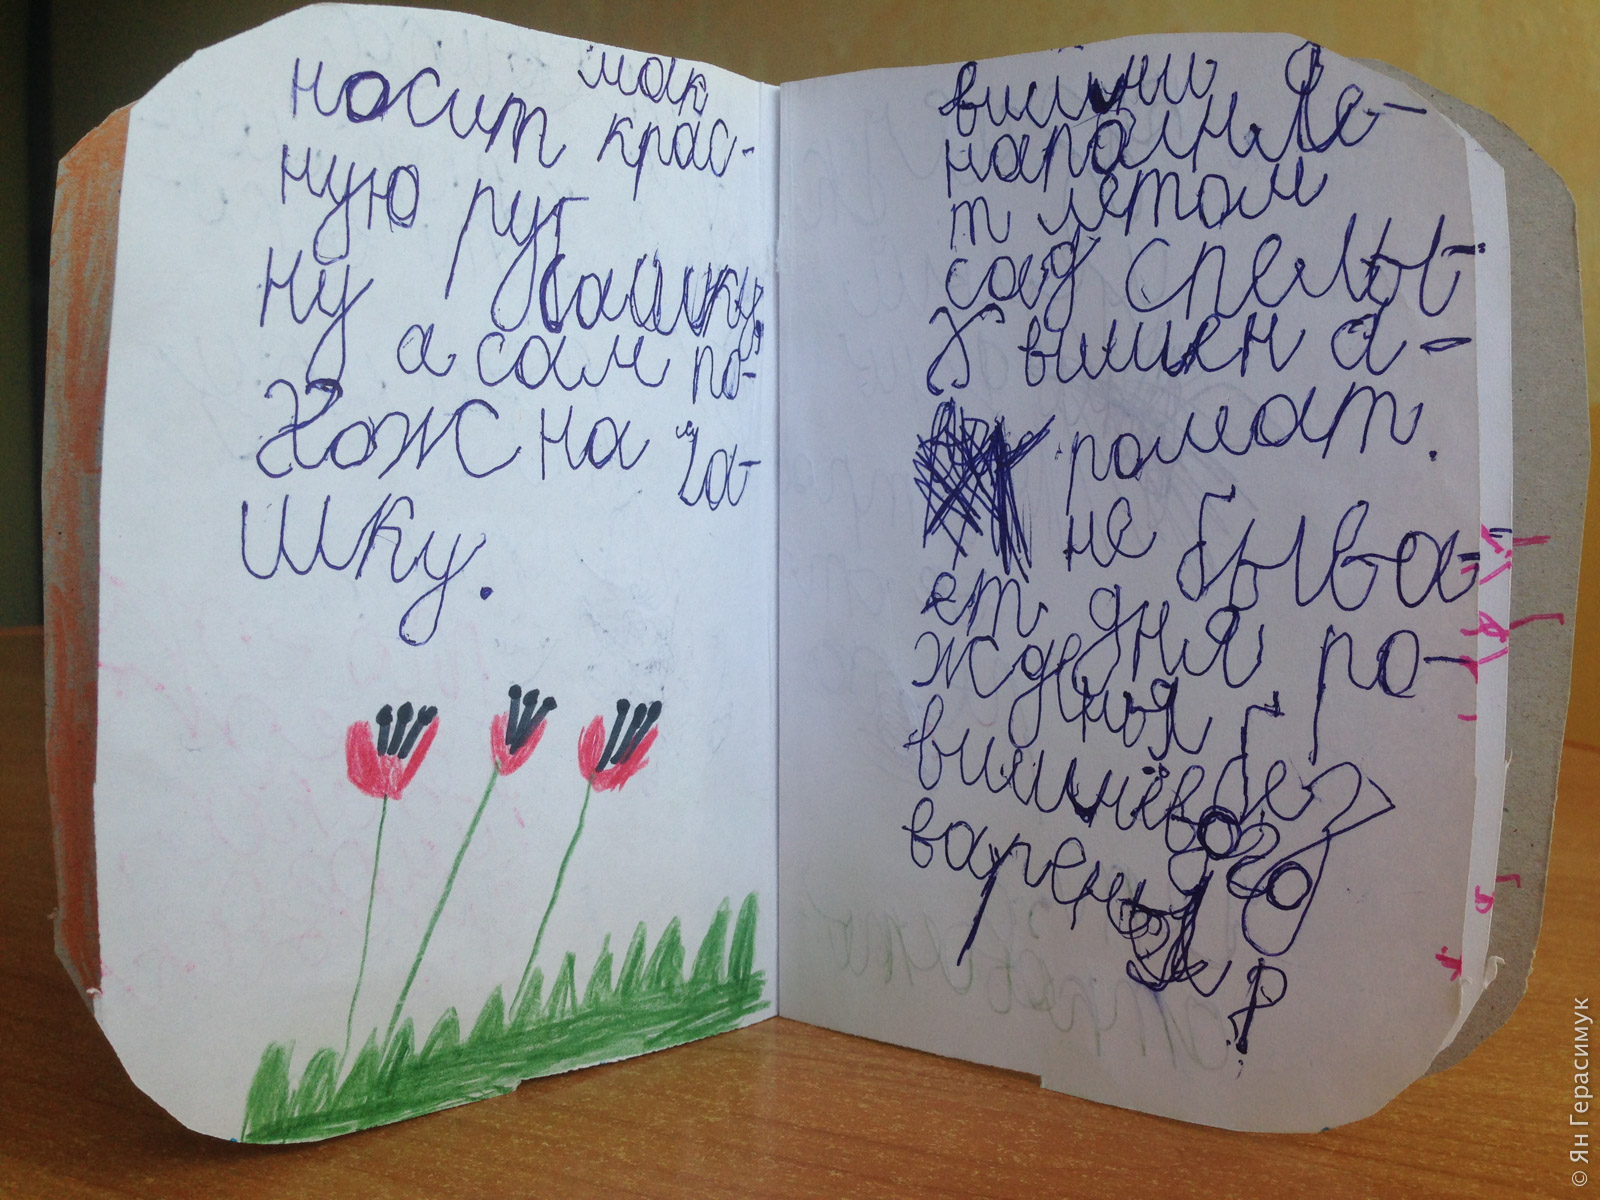 носит мак
ную крас-
руг
ну башку,
а сам по-
хож на ча-
шку.
вишни
нараин
т летом
сад спелы-
х вишен а-
ромат.
не быва-
ет дня ро-
жденья без
вишнёвого
варенья
© Ян Герасимук